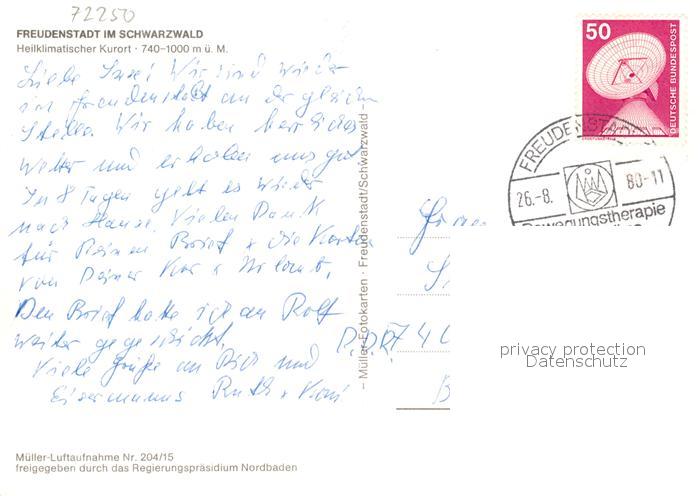 72250
FREUDENSTADT IM SCHWARZWALD
Heilklimatischer Kurort · 740–1000 m ü. M.
Liebe Inge! Wir sind wieder
in Freudenstadt an der gleichen
Stelle. Wir haben herrliches
Wetter und erholen uns gut
In 8 Tagen geht es wieder
nach Hause. Vielen Dank
für Deinen Brief + die Karten
von Deiner Kur + Urlaub.
Den Brief hatte ich an Rolf
weiter geschickt.
Viele Grüße an Dich und
Eisermanns Ruth +
– Müller-Fotokarten · Freudenstadt/Schwarzwald –
50
DEUTSCHE BUNDESPOST
FREUDENSTADT
26.-8. 80-11
Bewegungstherapie
DDR 74
privacy protection
Datenschutz
Müller-Luftaufnahme Nr. 204/15
freigegeben durch das Regierungspräsidium Nordbaden